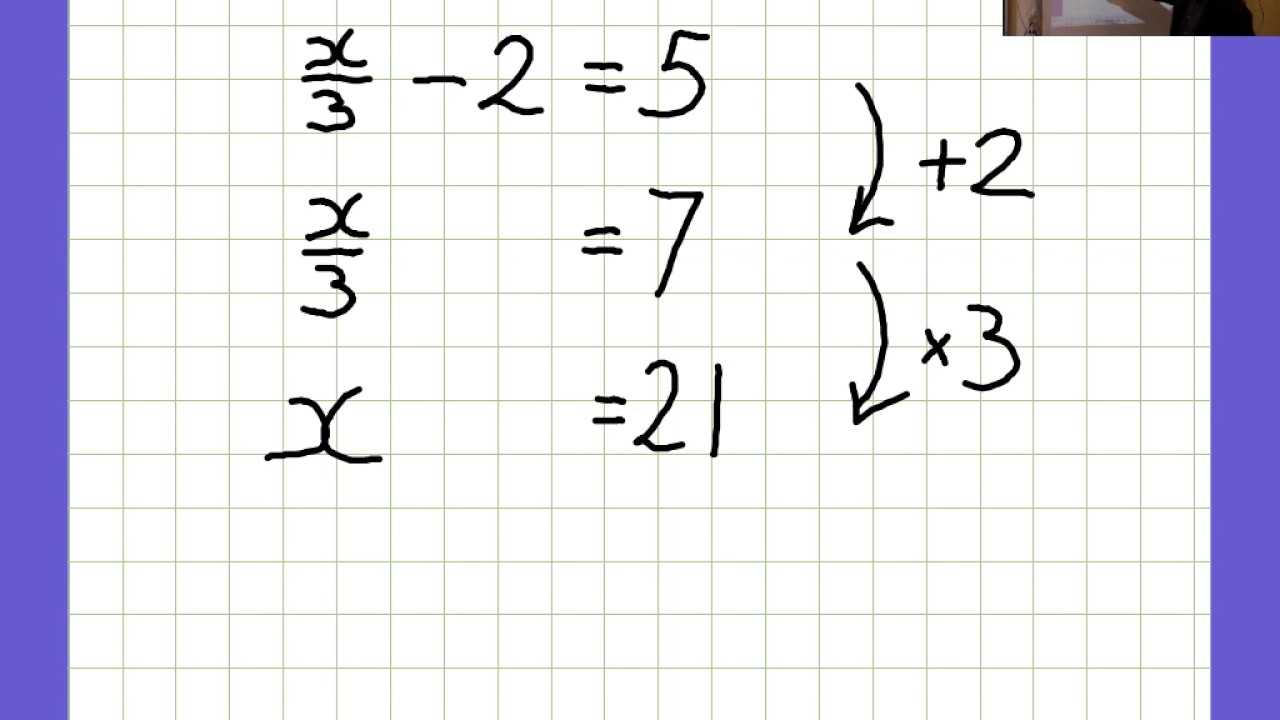 x/3 - 2 = 5
+2
x/3 = 7
×3
x = 21